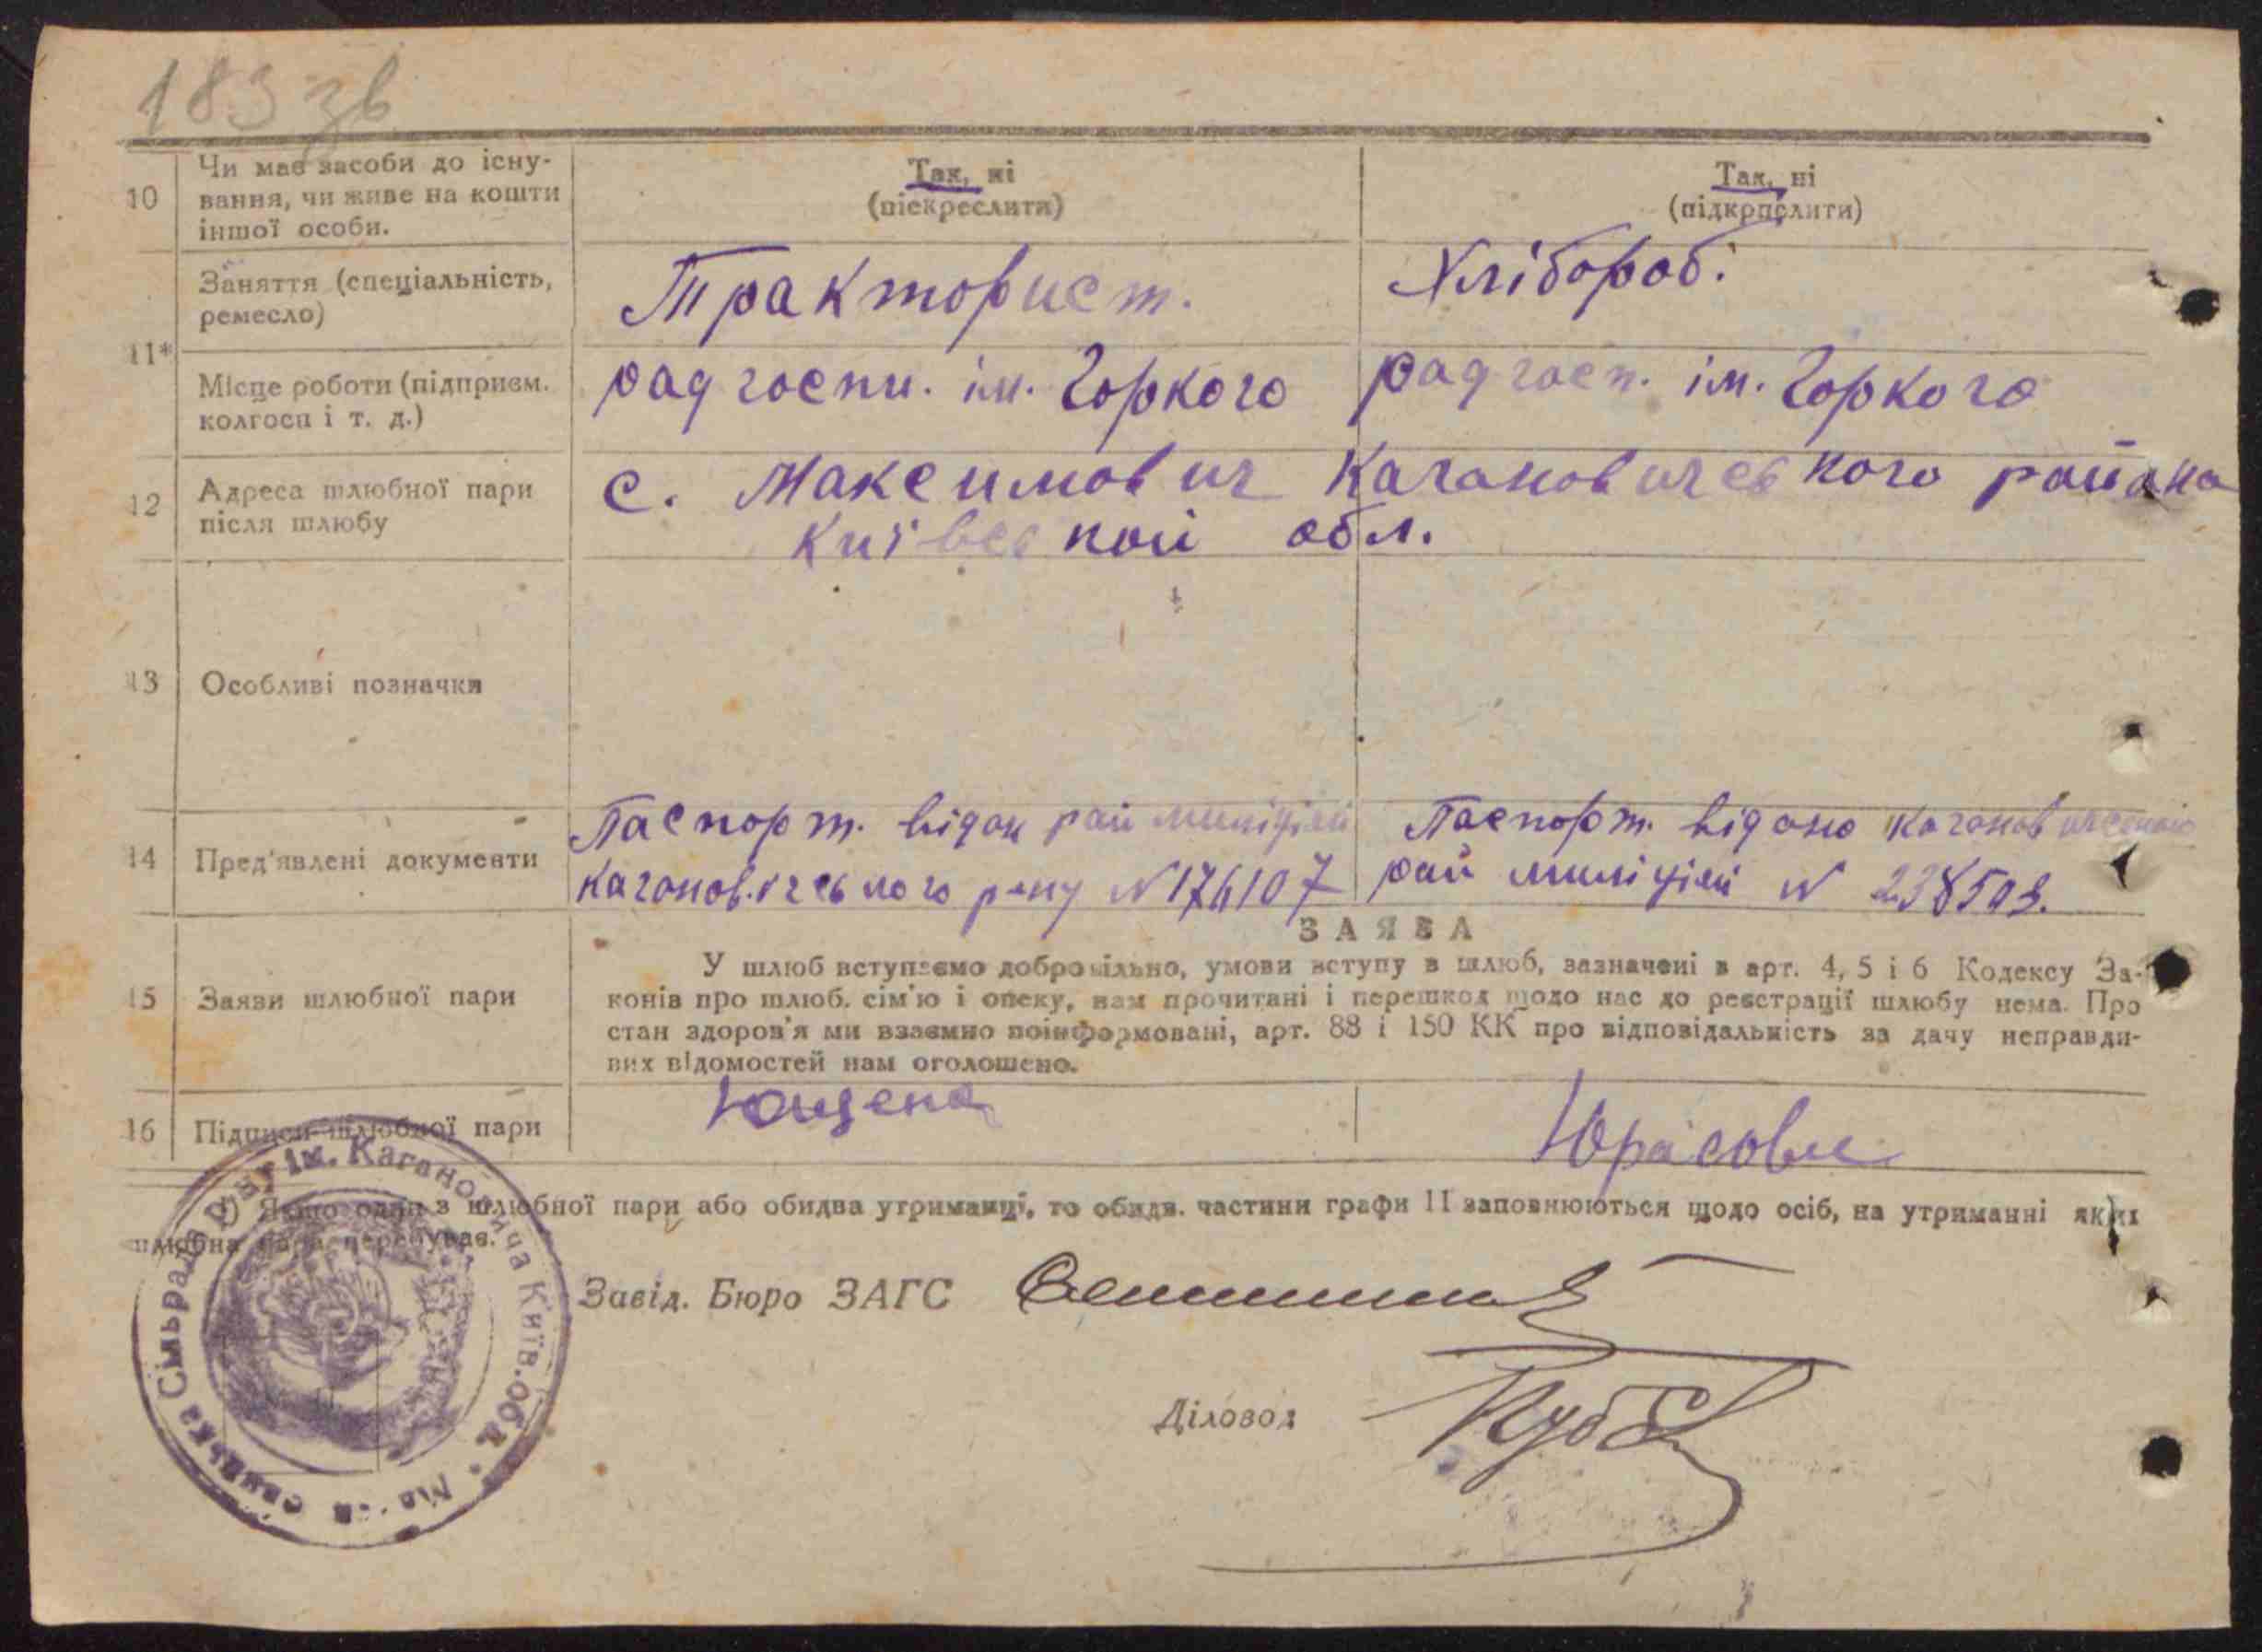 183 зв
10 Чи має засоби до існу-
вання, чи живе на кошти
іншої особи.
Так, ні
(піскреслити)
Так, ні
(підкреслити)
11*
Заняття (спеціальність,
ремесло)
Тракторист.
Хлібороб.
Місце роботи (підприєм.
колгосп і т. д.)
радгоспи. ім. Горкого
радгосп. ім. Горкого
12 Адреса шлюбної пари
після шлюбу
с. Максимович Кагановичевского района
Київської обл.
13 Особливі позначки
14 Пред'явлені документи
Паспорт. відан рай миліцієй
Каганов.ічевского р-ну N 176107
Паспорт. відано Кагановичською
рай миліцієй N 238503.
15 Заяви шлюбної пари
ЗАЯВА
У шлюб вступаємо добровільно, умови вступу в шлюб, зазначені в арт. 4, 5 і 6 Кодексу За-
конів про шлюб. сім'ю і опеку, нам прочитані і перешкод щодо нас до реєстрації шлюбу нема. Про
стан здоров'я ми взаємно поінформовані, арт. 88 і 150 КК про відповідальність за дачу неправди-
вих відомостей нам оголошено.
16 Підписи шлюбної пари
Ющена
Юрасове
*) Якщо один з шлюбної пари або обидва утриманці, то обидв. частини графи 11 заповнюються щодо осіб, на утриманні яких
шлюбна пара перебуває.
Завід. Бюро ЗАГС
Діловод
Сільрада р-ну ім. Кагановича Київ. обл.